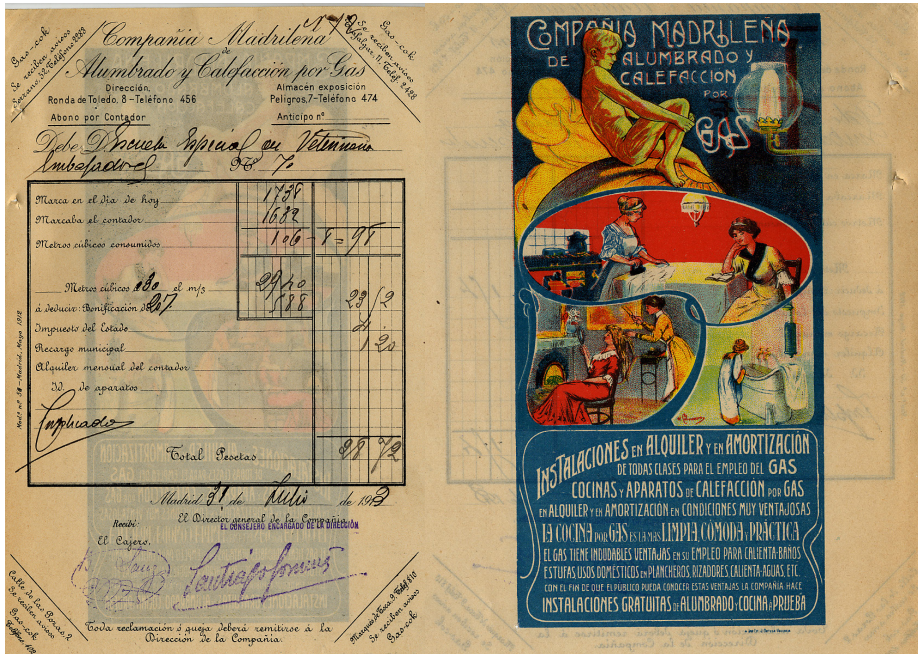 Nº 70
Compañía Madrileña
de
Alumbrado y Calefacción por Gas
Gas-cok
Se reciben avisos
Serrano, 32, Teléfono 2288
Gas-cok
Se reciben avisos
Teléf. 2428
Dirección,
Ronda de Toledo, 8-Teléfono 456
Almacén exposición
Peligros, 7-Teléfono 474
Abono por Contador
Anticipo nº
Debe D. Escuela Especial de Veterinaria
Embajadores Nº 70
Marca en el día de hoy 1738
Marcaba el contador 1632
Metros cúbicos consumidos 106 - 8 = 98
Metros cúbicos á 030 el m/3 29 40
á deducir: Bonificación de 207 5 88 23 52
Impuesto del Estado 4
Recargo municipal 1 20
Alquiler mensual del contador
Id. de aparatos
Empleado
Total Pesetas 28 72
Madrid 31 de Julio de 1913
Recibí:
El Director general de la Compañía,
EL CONSEJERO ENCARGADO DE LA DIRECCIÓN
El Cajero,
Santiago
Calle de las Pozas, 2
Se reciben avisos
Gas-cok
Se reciben avisos
Gas-cok
Toda reclamación ó queja deberá remitirse á la
Dirección de la Compañía.
Modº nº 58-Madrid, Mayo 1912
COMPAÑIA MADRILEÑA
DE ALUMBRADO Y
CALEFACCION
POR
GAS
INSTALACIONES EN ALQUILER Y EN AMORTIZACIÓN
DE TODAS CLASES PARA EL EMPLEO DEL GAS
COCINAS Y APARATOS DE CALEFACCIÓN POR GAS
EN ALQUILER Y EN AMORTIZACIÓN EN CONDICIONES MUY VENTAJOSAS
LA COCINA POR GAS ES LA MAS LIMPIA, CÓMODA Y PRÁCTICA
EL GAS TIENE INDUDABLES VENTAJAS EN SU EMPLEO PARA CALIENTA-BAÑOS
ESTUFAS, USOS DOMÉSTICOS EN PLANCHEROS, RIZADORES, CALIENTA-AGUAS, ETC.
CON EL FIN DE QUE EL PUBLICO PUEDA CONOCER ESTAS VENTAJAS LA COMPAÑIA HACE
INSTALACIONES GRATUITAS DE ALUMBRADO Y COCINA Á PRUEBA